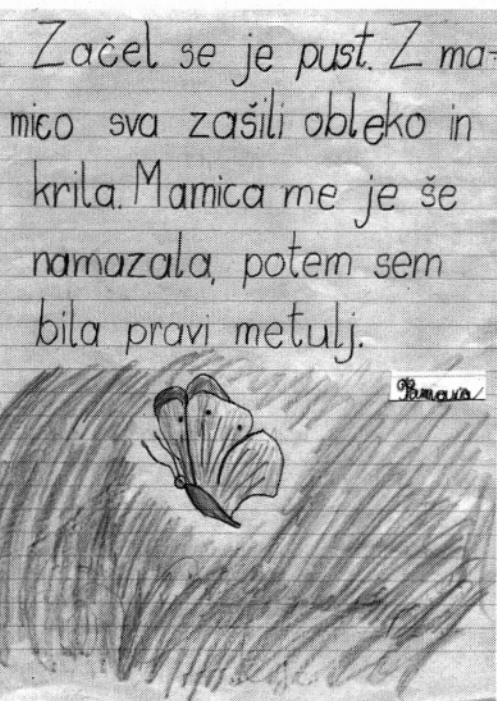 Začel se je pust. Z ma-
mico sva zašili obleko in
krila. Mamica me je še
namazala, potem sem
bila pravi metulj.